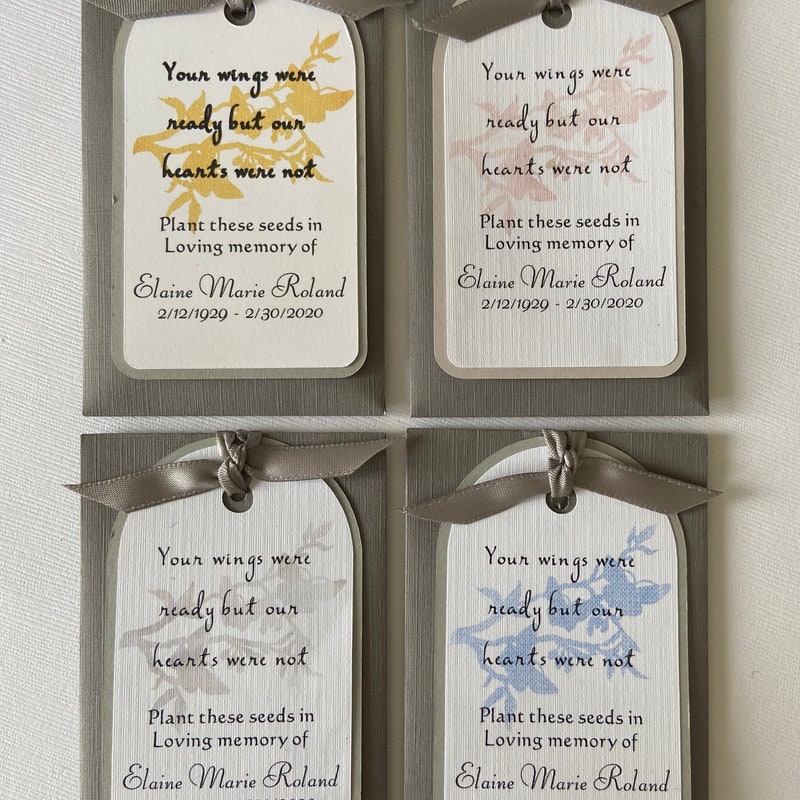 Your wings were
ready but our
hearts were not
Plant these seeds in
Loving memory of
Elaine Marie Roland
2/12/1929 - 2/30/2020
Your wings were
ready but our
hearts were not
Plant these seeds in
Loving memory of
Elaine Marie Roland
2/12/1929 - 2/30/2020
Your wings were
ready but our
hearts were not
Plant these seeds in
Loving memory of
Elaine Marie Roland
Your wings were
ready but our
hearts were not
Plant these seeds in
Loving memory of
Elaine Marie Roland